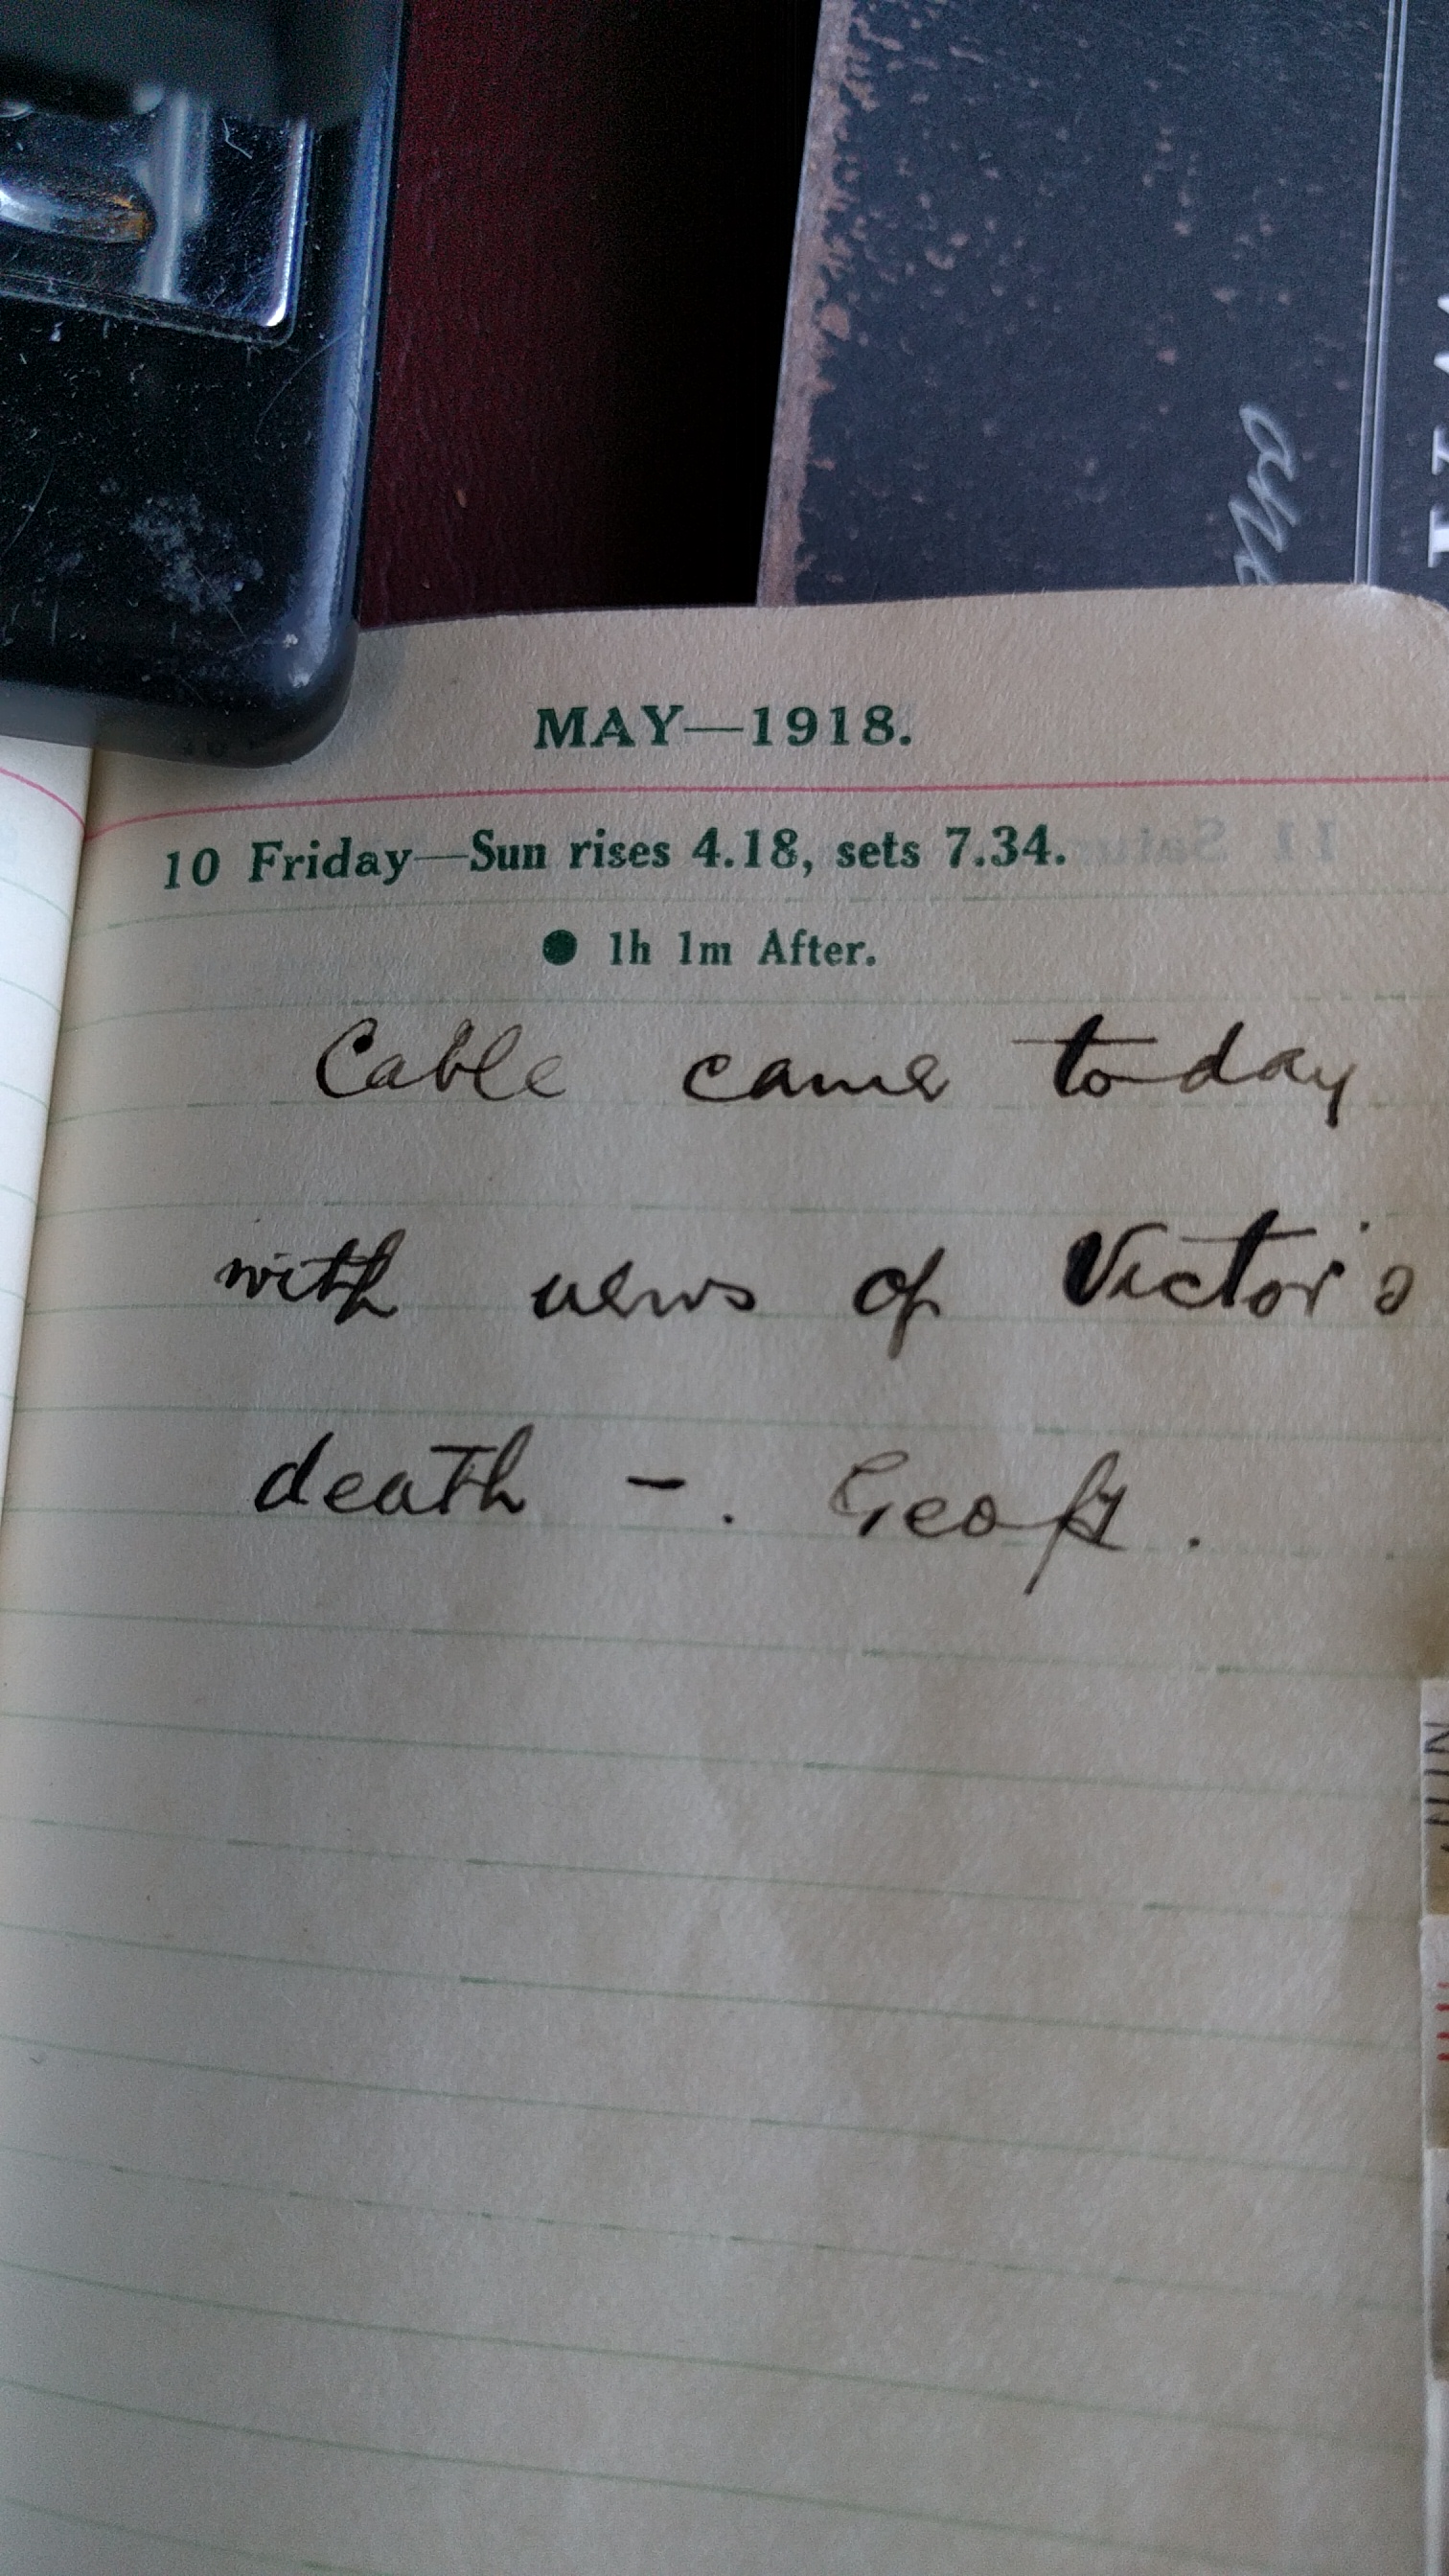 MAY—1918.
10 Friday—Sun rises 4.18, sets 7.34.
● 1h 1m After.
Cable came today
with news of Victor's
death - . Geoff .